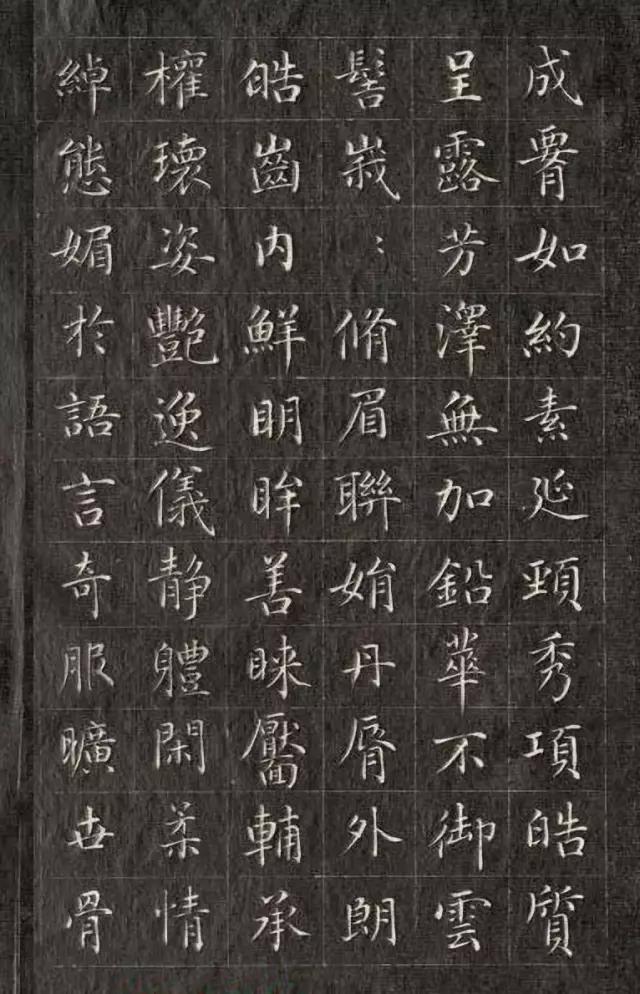 成腰如約素延頸秀項皓質
呈露芳澤無加鉛華不御雲
髻峩〻脩眉聯娟丹脣外朗
皓齒內鮮明眸善睞靨輔承
權瓌姿豔逸儀靜軆閑柔情
綽態媚於語言奇服曠世骨